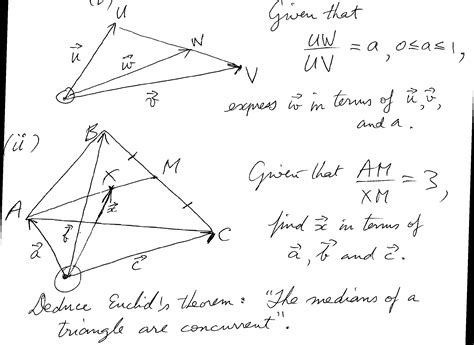 (i)
U
Given that
UW/UV = a, 0≤a≤1,
W
u⃗
w⃗
V
v⃗
express w⃗ in terms of u⃗, v⃗,
and a.
(ii)
B
M
X
Given that AM/XM = 3,
x⃗
A
C
find x⃗ in terms of
a⃗
b⃗
c⃗
a⃗, b⃗ and c⃗.
Deduce Euclid's theorem: "The medians of a
triangle are concurrent".